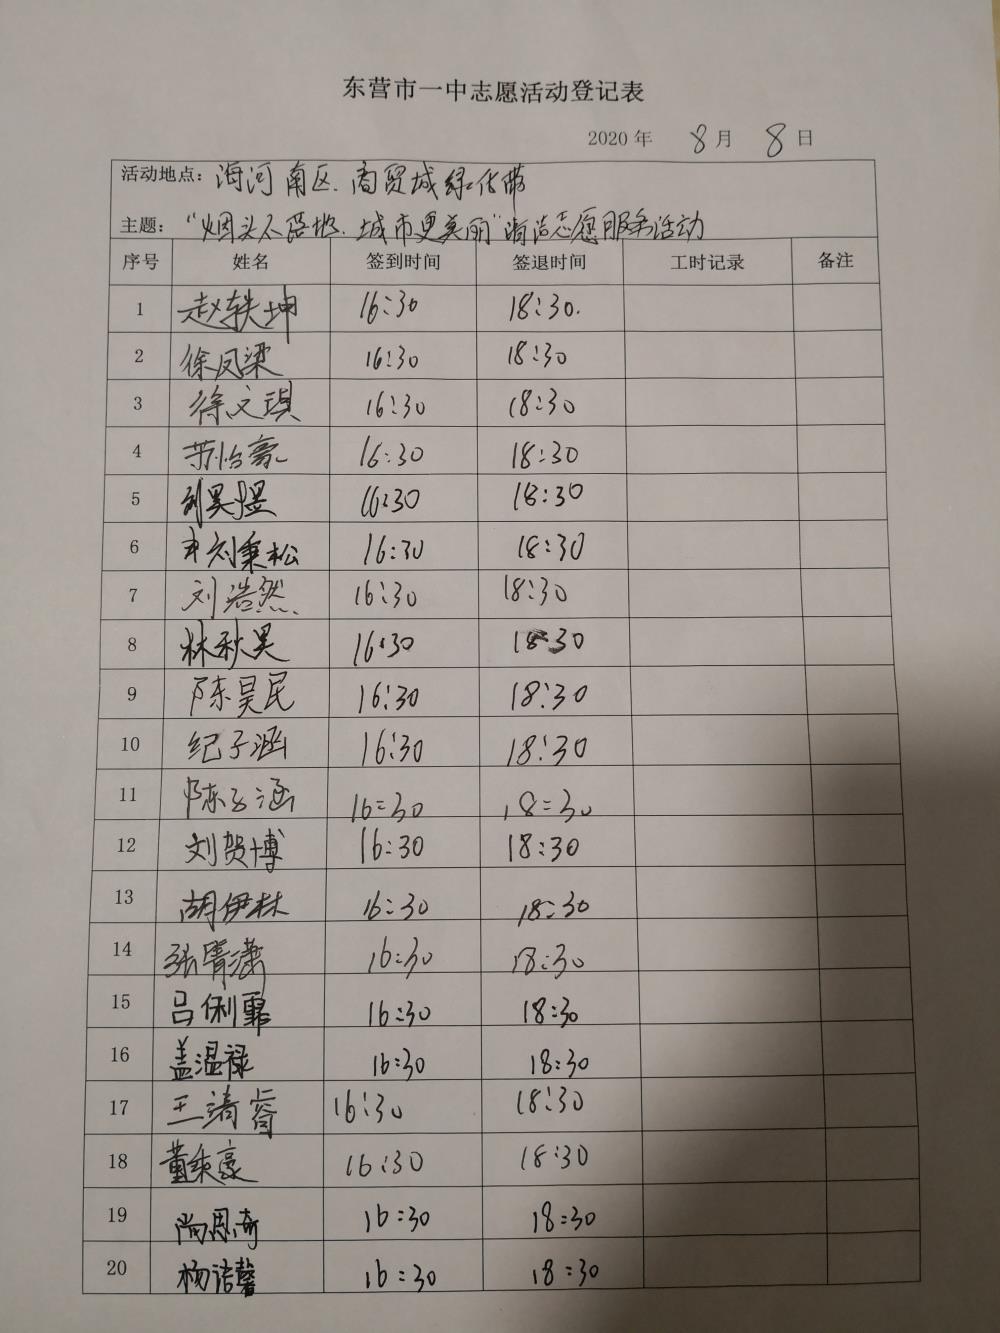 东营市一中志愿活动登记表
2020 年 8 月 8 日
活动地点: 海河南区.商贸城绿化带
主题: “烟头不落地.城市更美丽”清洁志愿服务活动
序号 姓名 签到时间 签退时间 工时记录 备注
1 赵轶坤 16:30 18:30.
2 徐凤梁 16:30 18:30
3 徐文 16:30 18:30
4 苏怡豪 16:30 18:30
5 刘昊煜 16:30 18:30
6 刘秉松 16:30 18:30
7 刘浩然 16:30 18:30
8 林秋昊 16:30 18:30
9 陈昊民 16:30 18:30
10 纪子涵 16:30 18:30
11 陈子涵 16:30 18:30
12 刘贺博 16:30 18:30
13 胡伊林 16:30 18:30
14 张潇 16:30 18:30
15 吕俐霏 16:30 18:30
16 盖温禄 16:30 18:30
17 王靖睿 16:30 18:30
18 董秉豪 16:30 18:30
19 尚恩奇 16:30 18:30
20 杨诺馨 16:30 18:30